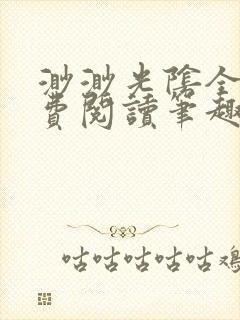 渺渺光陰全
費閱讀筆趣
咕咕咕咕咕雞